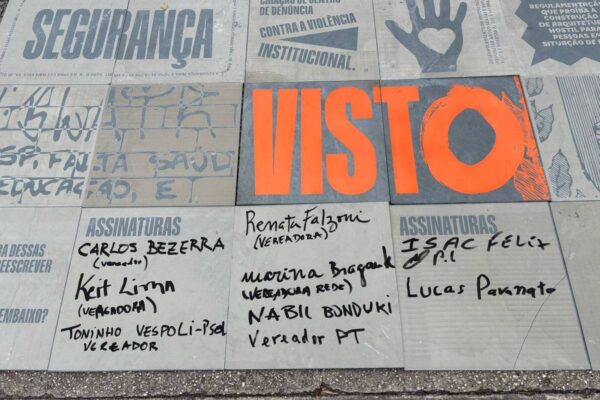 SEGURANÇA
CRIAÇÃO DE CENTRO
DE DENÚNCIA
CONTRA A VIOLÊNCIA
INSTITUCIONAL.
REGULAMENTAÇÃO
QUE PROÍBA A
CONSTRUÇÃO
DE ARQUITETURA
HOSTIL PARA
PESSOAS EM
SITUAÇÃO DE
SP, FALTA SAÚD
EDUCAÇÃO, E
VISTO
RA DESSAS
REESCREVER
EMBAIXO?
ASSINATURAS
CARLOS BEZERRA
(vereador)
Keit Lima
(VEREADORA)
TONINHO VESPOLI-PSOL
VEREADOR
Renata Falzoni
(VEREADORA)
Marina Bragante
(VEREADORA REDE)
NABIL BONDUKI
Vereador PT
ASSINATURAS
ISAC FELIX
PL
Lucas Pavanato